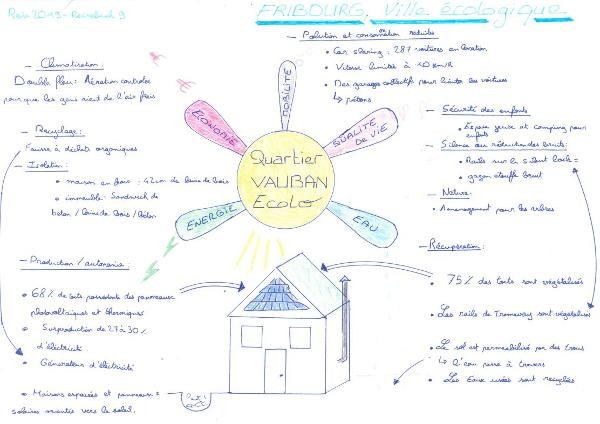 FRIBOURG, Ville écologique
- Pollution et consommation réduite
• Car sharing : 287 voitures en location
• Vitesse limité à km/h
• Des garages collectifs pour limiter les voitures
↳ piétons
- Climatisation :
Double flux : Aération controlée
pour que les gens aient de l'air frais
- Recyclage :
Fausse à déchets organiques
- Isolation :
• maison en bois : 42 cm de laine de bois
• immeuble : Sandwich de
béton / laine de bois / béton
MOBILITE
ECONOMIE
QUALITE
DE VIE
ENERGIE
EAU
Quartier
VAUBAN
Ecolo
- Sécurité des enfants
• Espace jeux et camping pour
enfants
- Silence ou réduction des bruits :
• Rails sur la =
gazon étouffe bruit
- Nature :
• Amenagement pour les arbres
- Récupération :
• 75% des toits sont végétalisés
• Les rails de Tramway sont végétalisés
• Le sol est perméabilisé par des trous
↳ L'eau passe à travers
• Les Eaux usées sont recyclées
- Production / autonomie :
• 68% de toits possèdent des panneaux
photovoltaïques et thermiques
• Surproduction de 27 à 30%
d'électricité
• Générateur d'électricité
• Maisons espacées et panneaux =
solaires orientés vers le soleil.